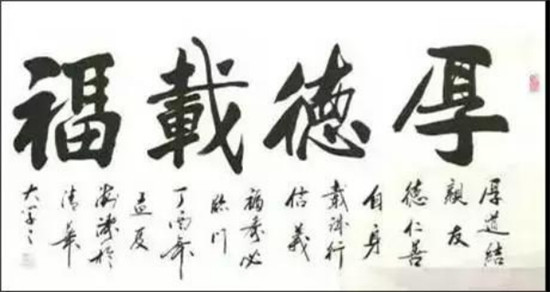 厚德載福
厚道結
親友
德仁善
自身
載誠行
信義
福壽必
臨門
丁酉年
孟夏
濤於
清華
大學